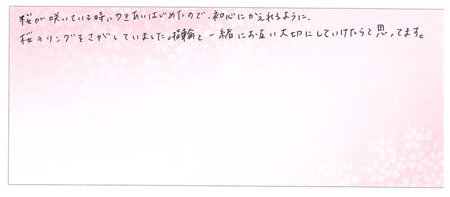 桜が咲いている時につきあいはじめたので、初心にかえれるように、
桜のリングをさがしていました。指輪と一緒にお互い大切にしていけたらと思ってます。